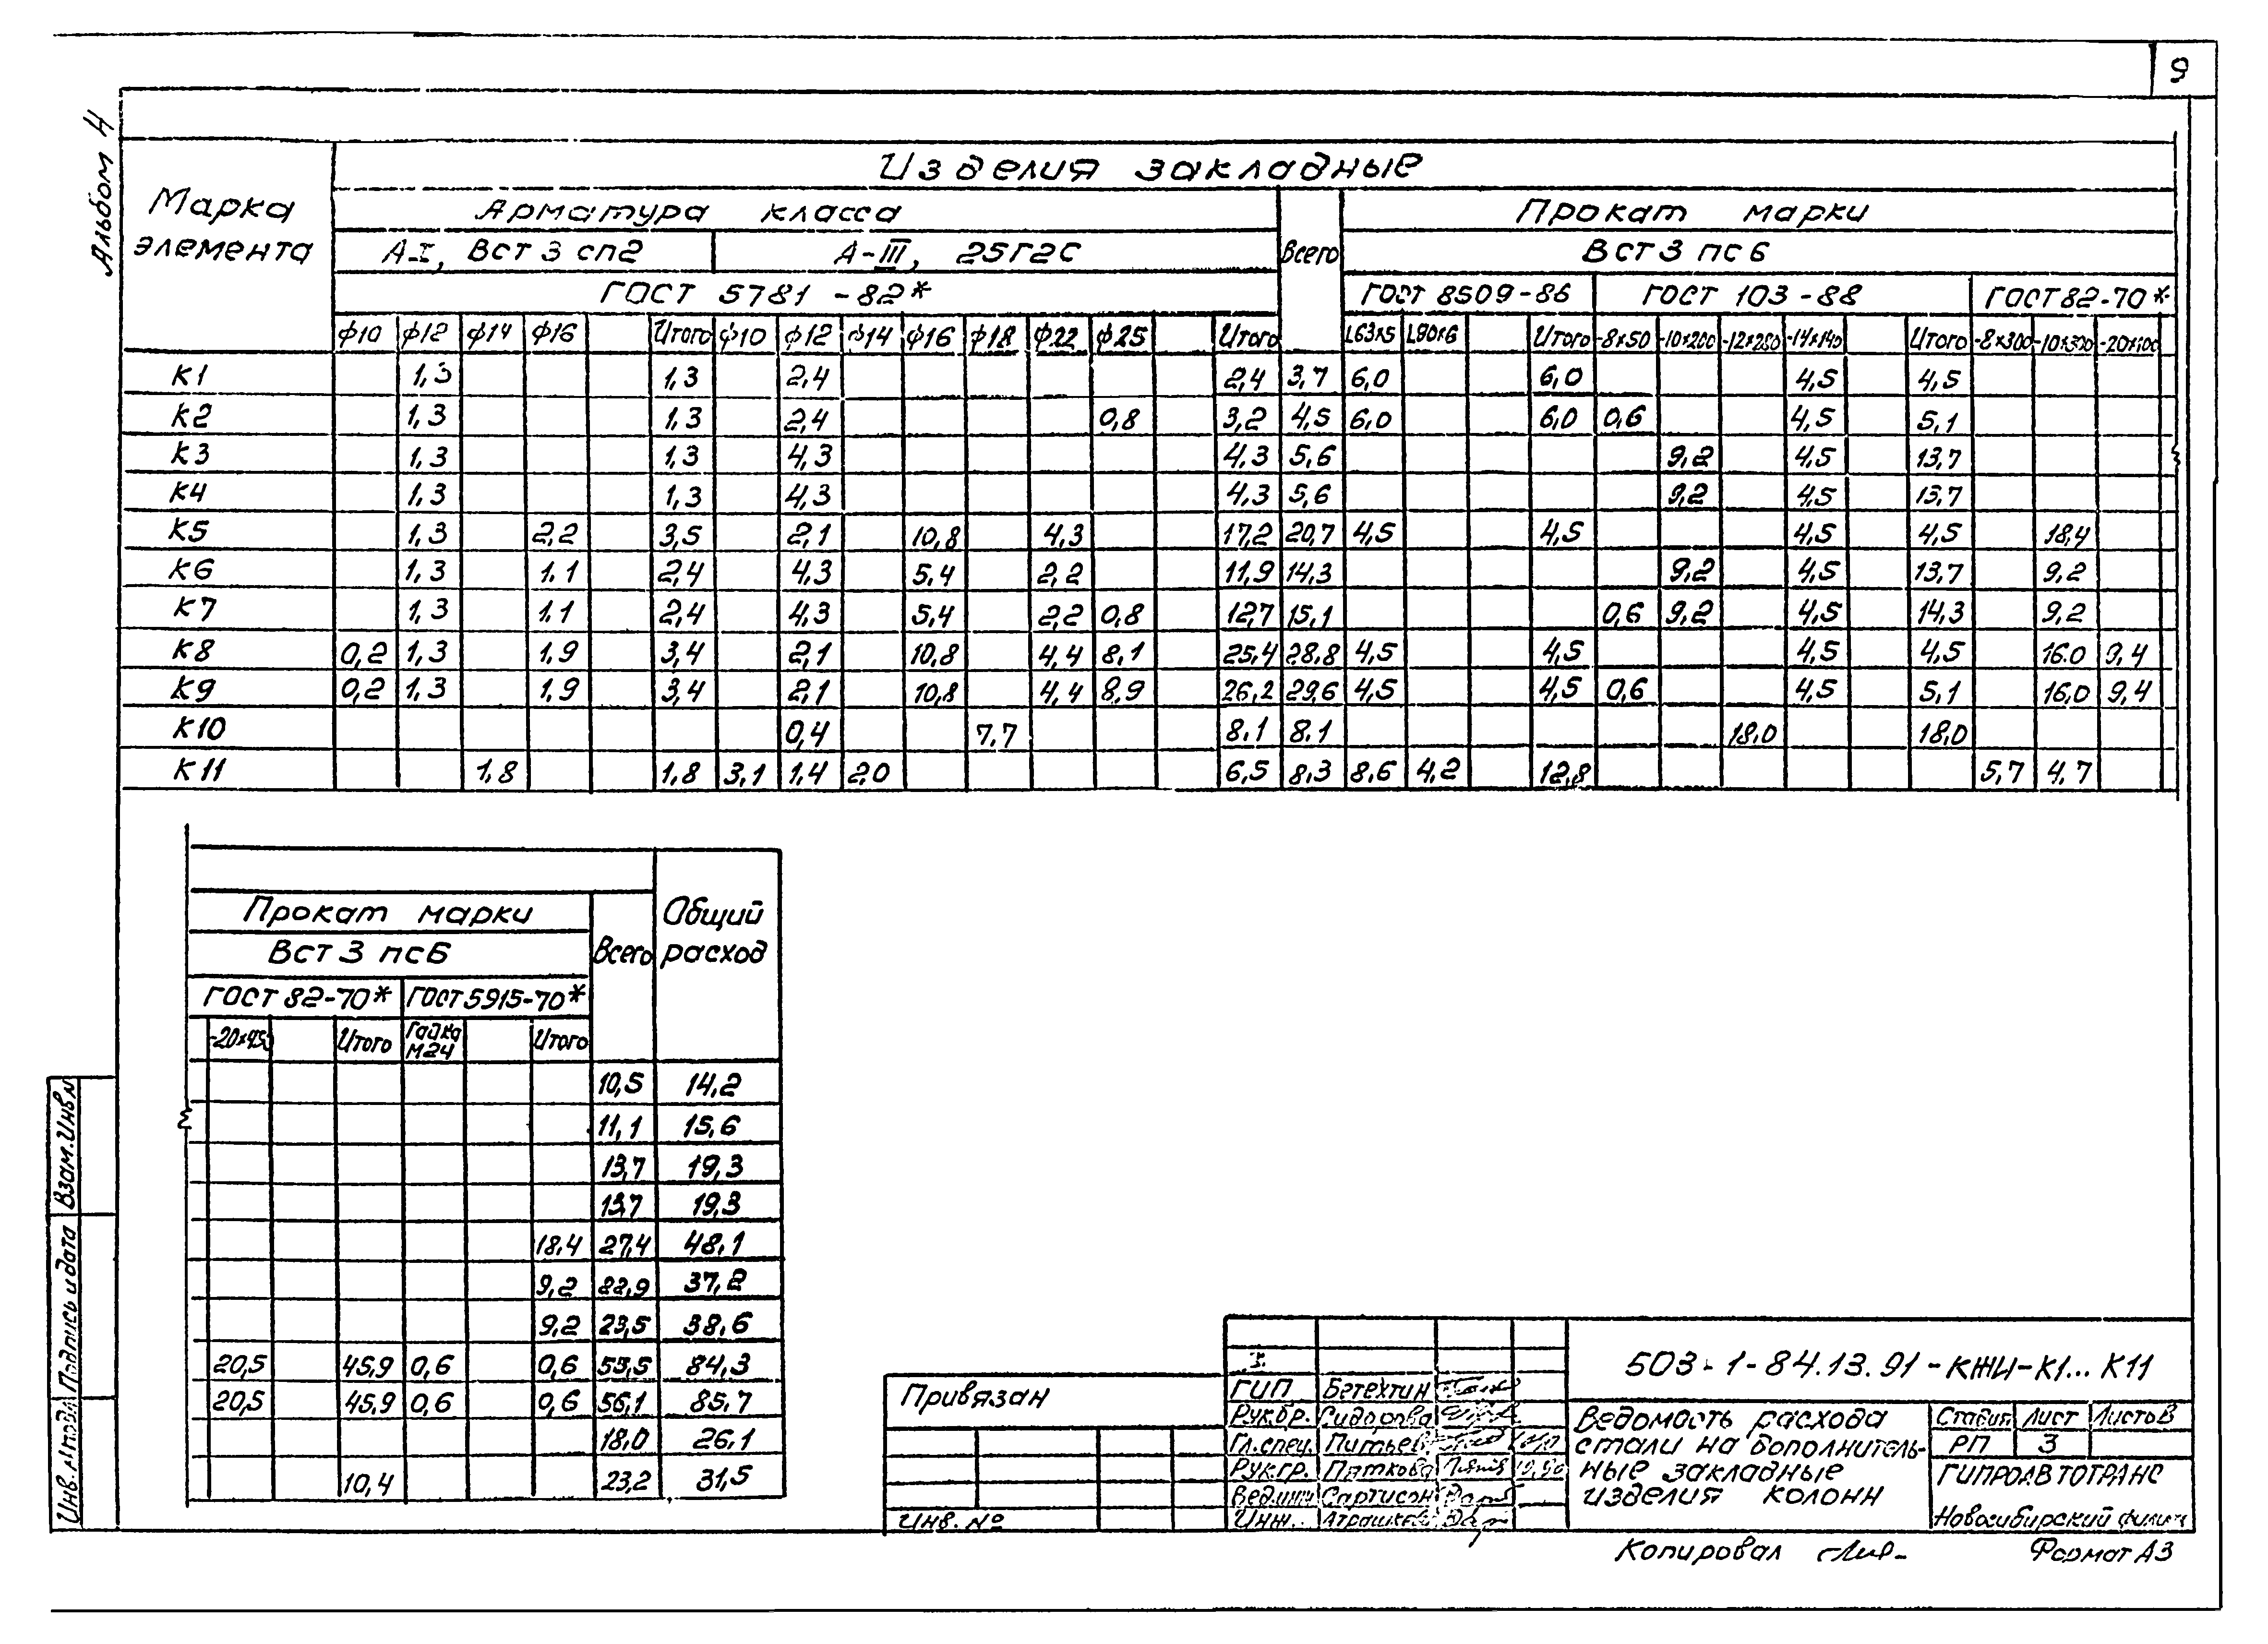 9
Альбом 4
Марка элемента
Изделия закладные
Арматура класса
Всего
Прокат марки
А-I, Вст 3 сп2
А-III, 25Г2С
Вст 3 пс 6
ГОСТ 5781-82*
ГОСТ 8509-86
ГОСТ 103-88
ГОСТ 82-70*
ф10 ф12 ф14 ф16 Итого ф10 ф12 ф14 ф16 ф18 ф22 ф25 Итого L63x5 L90x6 Итого -8x50 -10x200 -12x280 -14x140 Итого -8x300 -10x300 -20x100
К1 1,3 1,3 2,4 2,4 3,7 6,0 6,0 4,5 4,5
К2 1,3 1,3 2,4 0,8 3,2 4,5 6,0 6,0 0,6 4,5 5,1
К3 1,3 1,3 4,3 4,3 5,6 9,2 4,5 13,7
К4 1,3 1,3 4,3 4,3 5,6 9,2 4,5 13,7
К5 1,3 2,2 3,5 2,1 10,8 4,3 17,2 20,7 4,5 4,5 4,5 4,5 18,4
К6 1,3 1.1 2,4 4,3 5,4 2,2 11,9 14,3 9,2 4,5 13,7 9,2
К7 1,3 1.1 2,4 4,3 5,4 2,2 0,8 12,7 15,1 0,6 9,2 4,5 14,3 9,2
К8 0,2 1,3 1.9 3,4 2,1 10,8 4,4 8,1 25,4 28,8 4,5 4,5 4,5 4,5 16.0 9,4
К9 0,2 1,3 1.9 3,4 2,1 10,8 4,4 8,9 26,2 29,6 4,5 4,5 0,6 4,5 5,1 16,0 9,4
К10 0,4 7.7 8.1 8.1 18,0 18,0
К11 1,8 1,8 3,1 1,4 2,0 6,5 8,3 8,6 4,2 12,8 5,7 4,7
Прокат марки
Вст 3 пс6
Всего
Общий расход
ГОСТ 82-70*
ГОСТ 5915-70*
-20x45 Итого Гайка М24 Итого
10,5 14,2
11,1 15,6
13,7 19,3
13,7 19,3
18,4 27,4 48,1
9,2 22,9 37,2
9,2 23,5 38,6
20,5 45,9 0,6 0,6 55,5 84,3
20,5 45,9 0,6 0,6 56,1 85,7
18,0 26,1
10,4 23,2 31,5
Взам.Инв.N
Подпись и дата
Инв. N подл
Привязан
Инв. №
ГИП Бетехтин
Рук.бр. Сидорова
Гл.спец. Питьев
Рук.гр. Пяткова
Вед.инж Сартисон
Инж. Атрашкев
503-1-84.13.91-КЖИ-К1...К11
Ведомость расхода
стали на дополнитель-
ные закладные
изделия колонн
Стадия Лист Листов
РП 3
ГИПРОАВТОТРАНС
Новосибирский филиал
Копировал
Формат А3